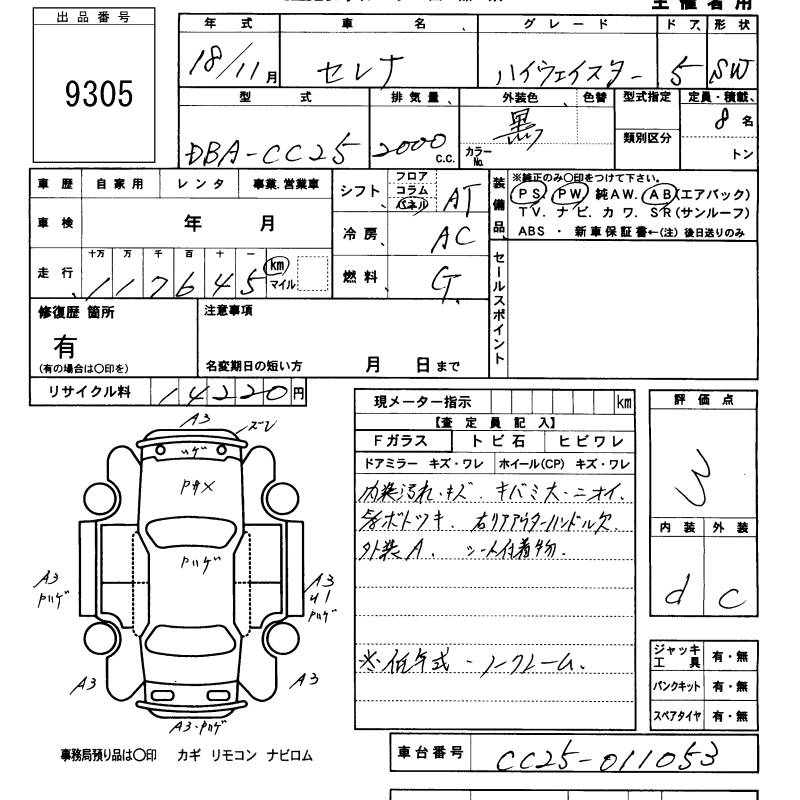 出品番号
9305
年式 車名 グレード ドア 形状
18/11月 セレナ ハイウェイスター 5 SW
型式 排気量 外装色 色替 型式指定 定員・積載
DBA-CC25 2000 C.C. 黒 カラーNo. 類別区分 8名
トン
車歴 自家用 レンタ 事業.営業車
車検 年 月
走行 十万 万 千 百 十 一
117645 km マイル
シフト フロア コラム パネル AT
冷房 AC
燃料 G.
装備品
※純正のみ〇印をつけて下さい。
PS. PW 純AW. AB(エアバック)
TV. ナビ. カワ. SR(サンルーフ)
ABS ・ 新車保証書←(注) 後日送りのみ
セールスポイント
修復歴 箇所
有
(有の場合は〇印を)
注意事項
名変期日の短い方 月 日まで
リサイクル料 14220円
現メーター指示 km
【査定員記入】
Fガラス トビ石 ヒビワレ
ドアミラー キズ・ワレ ホイール(CP) キズ・ワレ
内装汚れ・キズ. キバミ大・ニオイ.
ボトツキ. 右リアアウターハンドル欠.
外装A. シート付着物.
※低年式・ノークレーム.
評価点
3
内装 外装
d c
ジャッキ 工具 有・無
パンクキット 有・無
スペアタイヤ 有・無
A3
ズレ
A3
A3
A3
A3
A3.
事務局預り品は〇印 カギ リモコン ナビロム
車台番号 CC25-011053